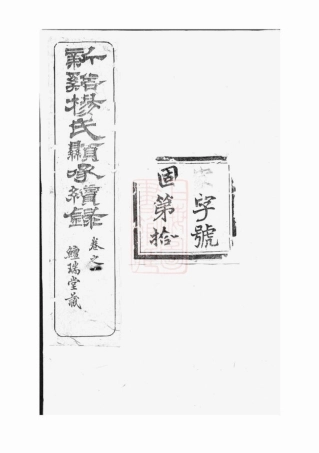 字號
固第拾
新谿楊氏顯承續錄
卷之
鱣瑞堂藏